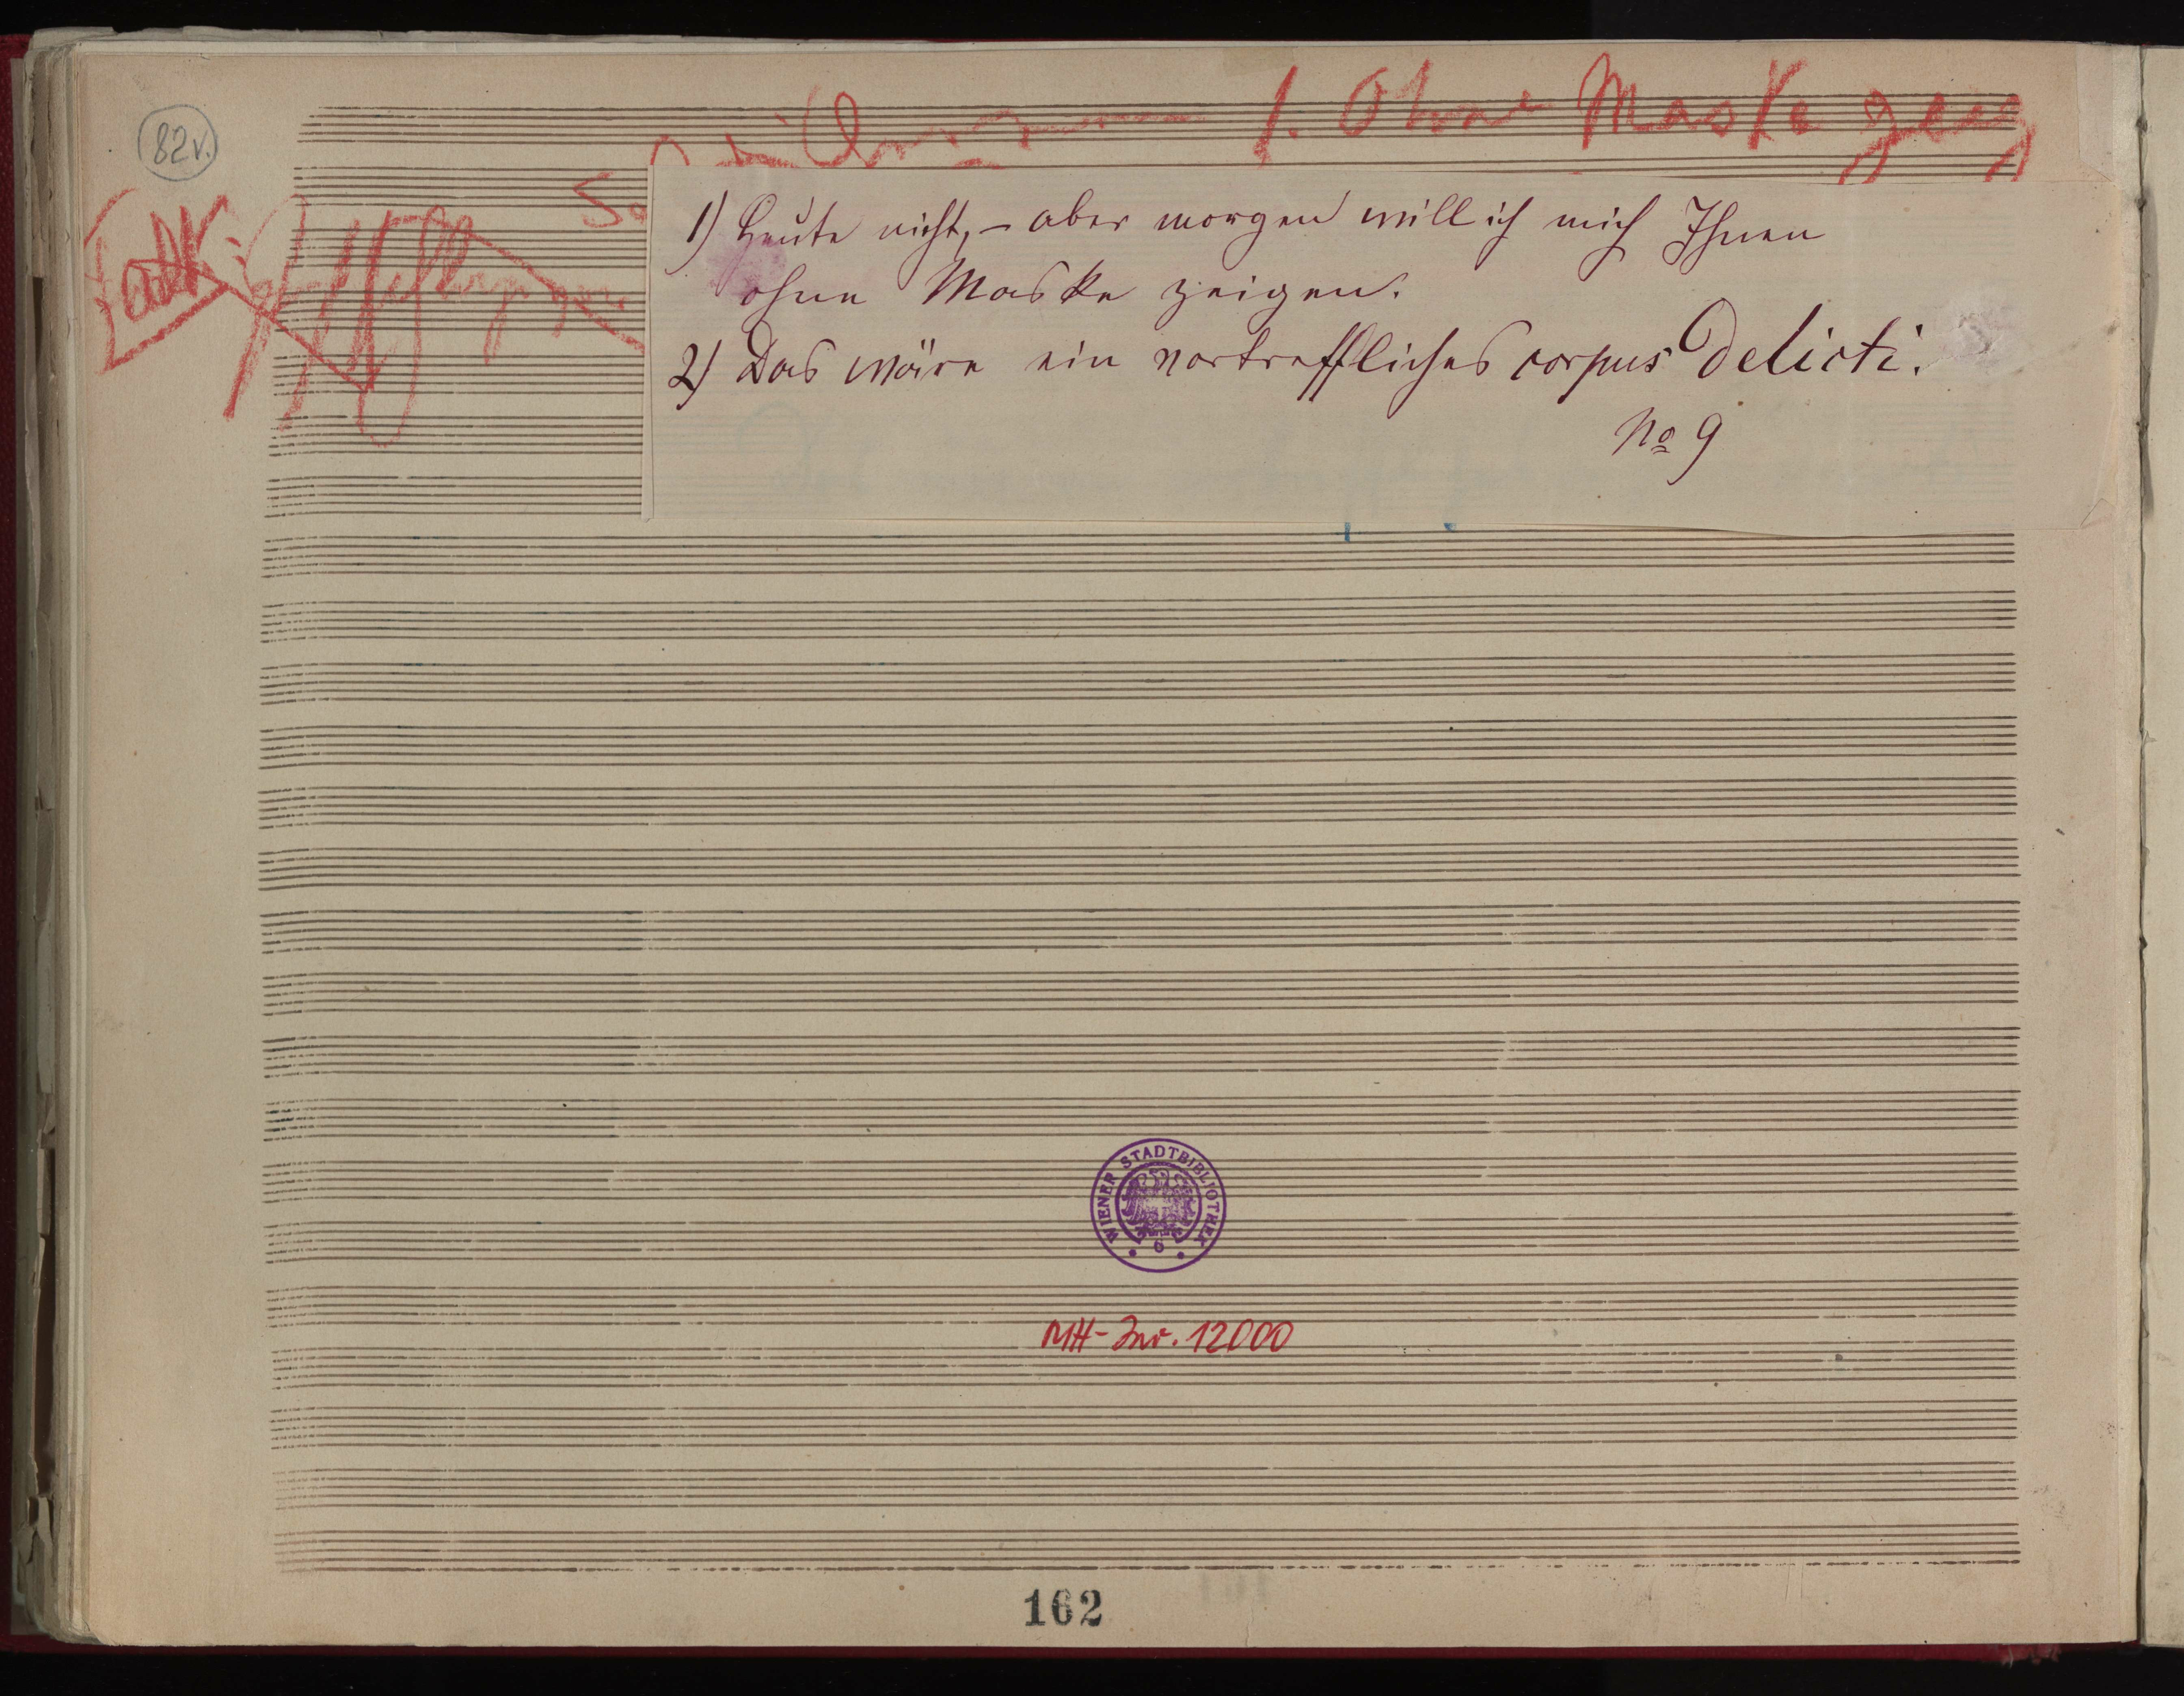 82v.
1. Ohne Maske
1) Heute nicht, – aber morgen will ich mich Ihnen
ohne Maske zeigen.
2) Das wäre ein vortreffliches corpus delicti.
No 9
WIENER STADTBIBLIOTHEK
6
MH-Inv. 12000
162